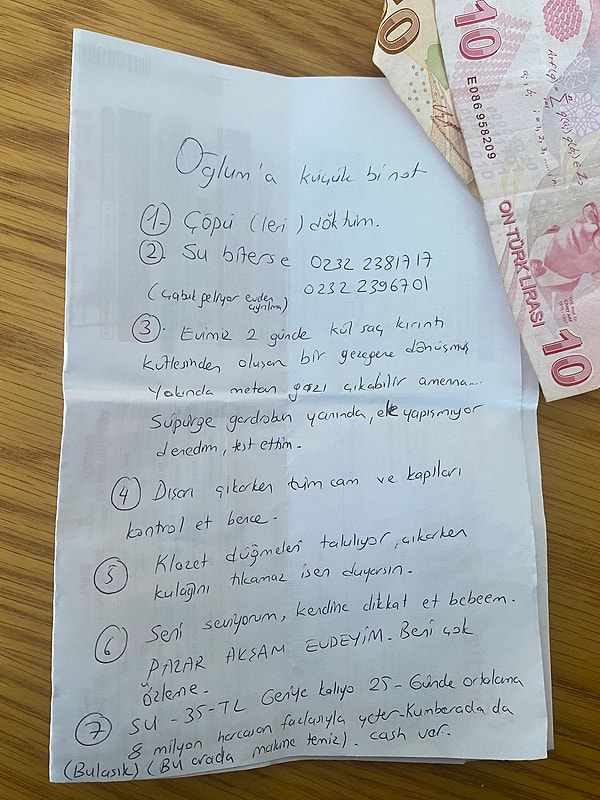 Oğlum'a küçük bi not
1- Çöpü (leri) döktüm.
2. Su biterse 0232 2381717
0232 2396701
(çabuk geliyor evden ayrılma)
3 Evimiz 2 günde kül saç kırıntı
kütlesinden oluşan bir gezegene dönüşmüş
yakında metan gazı çıkabilir amenna...
Süpürge gardrobun yanında, ele yapışmıyor
denedim, test ettim.
4 Dışarı çıkarken tüm cam ve kapıları
kontrol et bence.
5 Klozet düğmeleri takılıyor, çıkarken
kulağını tıkamaz isen duyarsın.
6 Seni seviyorum, kendine dikkat et bebeem.
PAZAR AKŞAM EVDEYİM. Beni çok
özleme.
7 SU - 35-TL Geriye kalıyo 25- Günde ortalama
8 milyon harcasan fazlasıyla yeter-Kumbarada da
(Bulaşık) (Bu arada makine temiz). cash var.
10
E086958209
ON TÜRK LİRASI
10
0